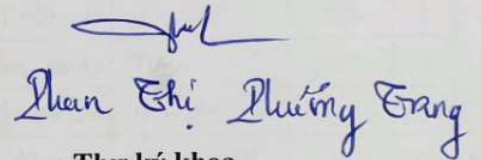 Phan Thị Phương Trang
Thư ký khoa